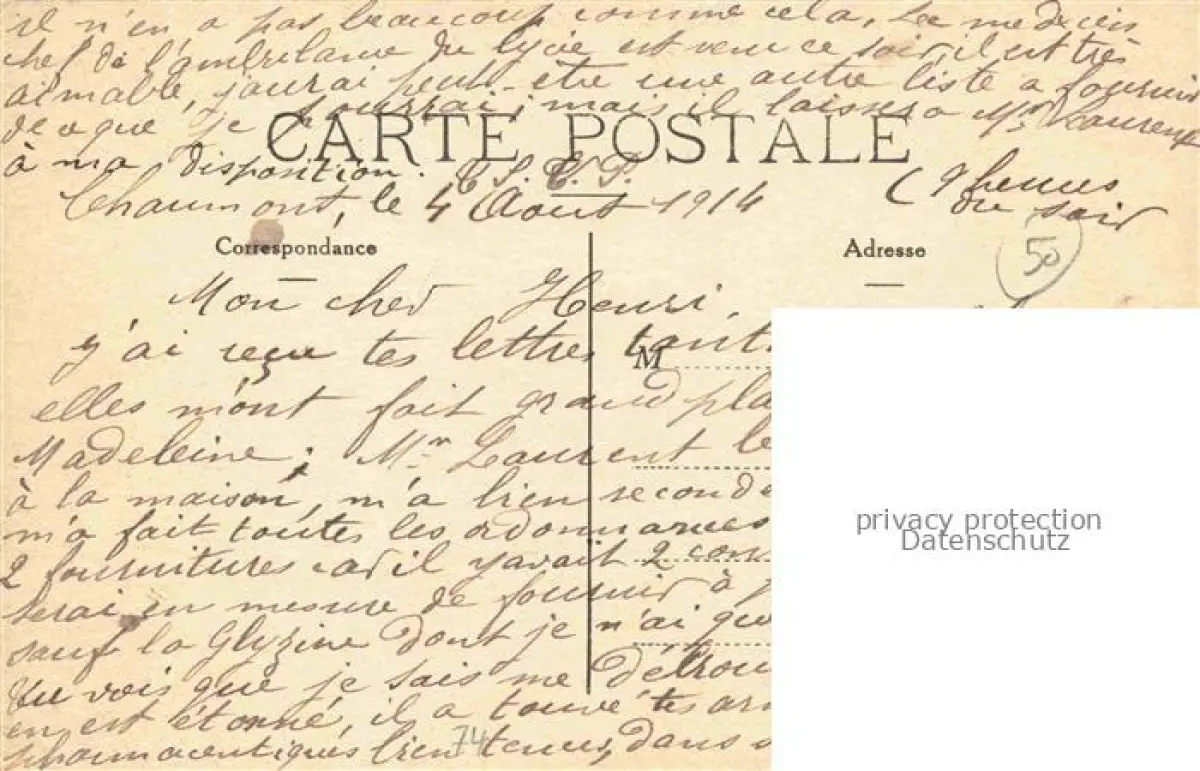 il n'en a pas beaucoup comme cela. Le medecin
chef de l'ambulance du lycée est venu ce soir, il est très
aimable, j'aurai peut-etre une autre liste a fournir
de ce que je pourrai; mais il laissera Mr Laurent
à ma disposition. T. S. V. P.
CARTE POSTALE
Chaumont, le 4 Aout 1914 (9 heures
du soir
50
Correspondance
Adresse
Mon cher Henri,
j'ai reçu tes lettres tant
M
elles m'ont fait grand pla
Madeleine; Mr Laurent le
à la maison, m'a bien seconde
m'a fait toutes les ordonnances
2 fournitures car il y avait 2 con
serai en mesure de fournir à
sauf la Glyzine dont je n'ai que
tu vois que je sais me débrou
en est étonné, il a trouvé tes arm
pharmaceutiques bien tenues, dans
74
privacy protection
Datenschutz